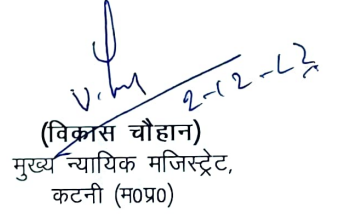 (विकास चौहान)
मुख्य न्यायिक मजिस्ट्रेट,
कटनी (म0प्र0)